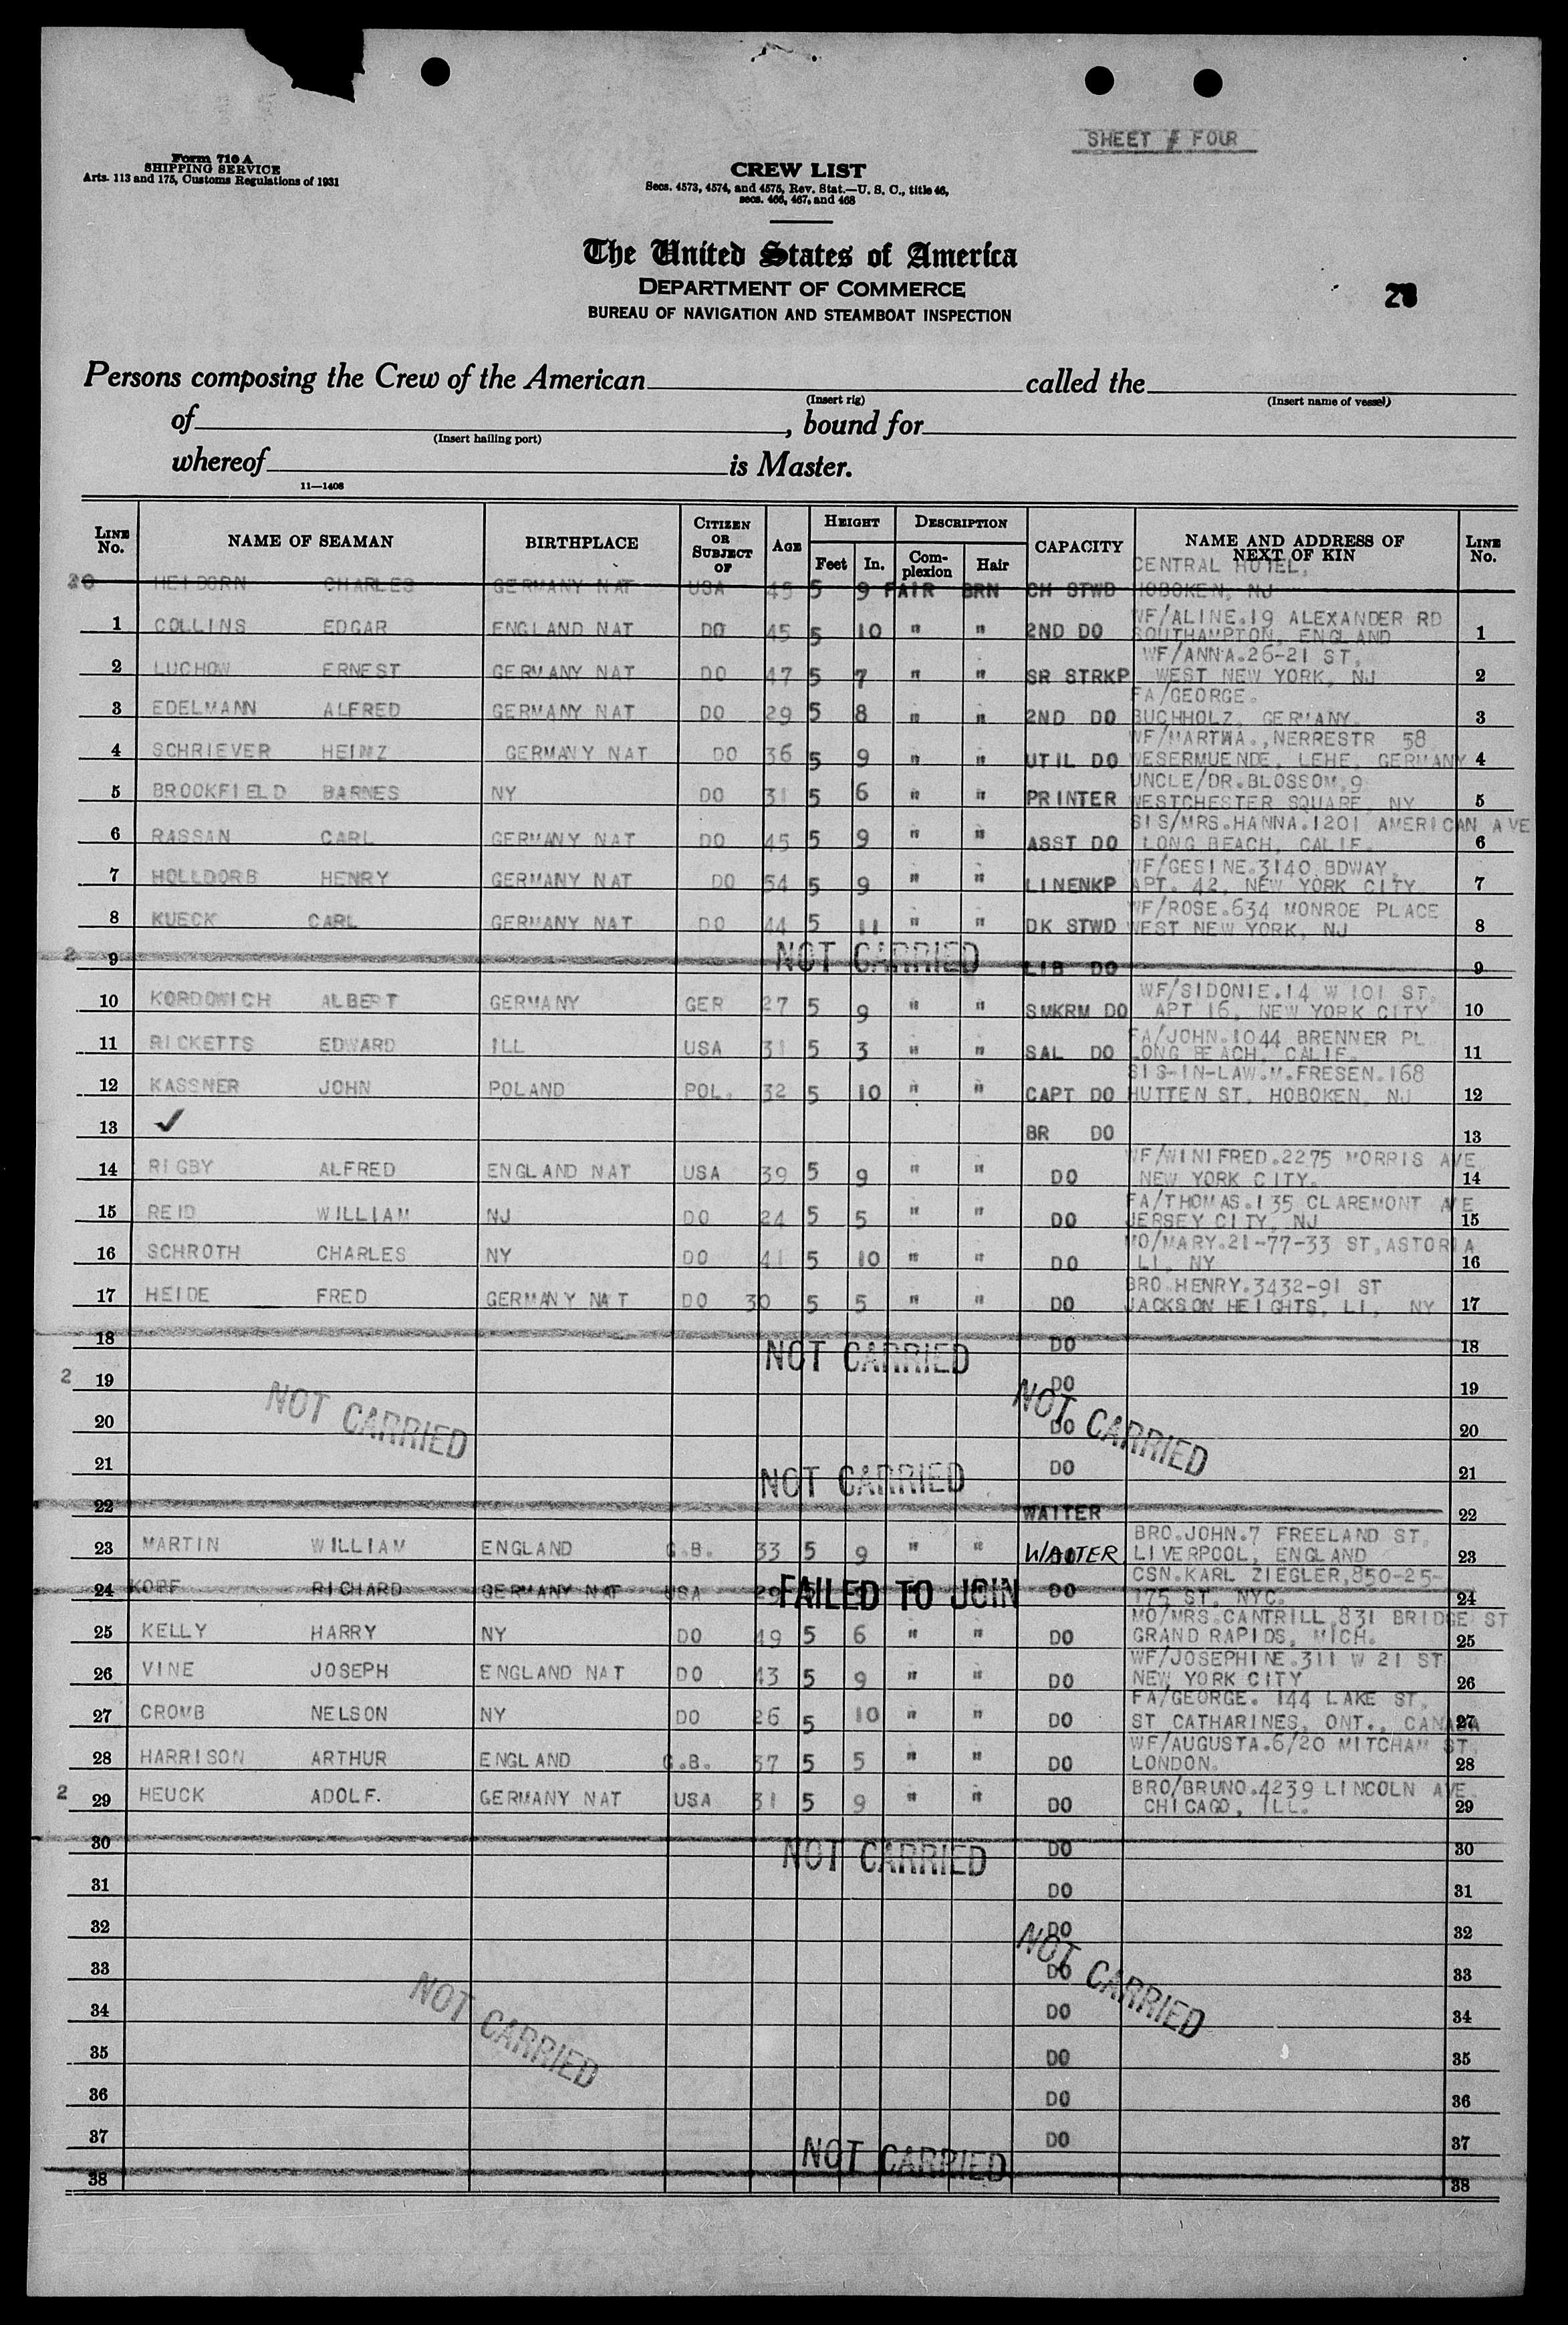 SHEET # FOUR
Form 710 A
SHIPPING SERVICE
Arts. 113 and 175, Customs Regulations of 1931
CREW LIST
Secs. 4573, 4574, and 4575, Rev. Stat.—U. S. C., title 46,
secs. 466, 467, and 468
The United States of America
DEPARTMENT OF COMMERCE
BUREAU OF NAVIGATION AND STEAMBOAT INSPECTION
Persons composing the Crew of the American called the
(Insert rig) (Insert name of vessel)
of , bound for
(Insert hailing port)
whereof is Master.
11—1408
LINE No. NAME OF SEAMAN BIRTHPLACE CITIZEN OR SUBJECT OF AGE HEIGHT Feet In. DESCRIPTION Complexion Hair CAPACITY NAME AND ADDRESS OF NEXT OF KIN LINE No.
CENTRAL HOTEL,
HEIDORN CHARLES GERMANY NAT USA 45 5 9 FAIR BRN CH STWD HOBOKEN, NJ
WF/ALINE.19 ALEXANDER RD
1 COLLINS EDGAR ENGLAND NAT DO 45 5 10 " " 2ND DO SOUTHAMPTON, ENGLAND 1
WF/ANNA.26-21 ST,
2 LUCHOW ERNEST GERMANY NAT DO 47 5 7 " " SR STRKP WEST NEW YORK, NJ 2
FA/GEORGE.
3 EDELMANN ALFRED GERMANY NAT DO 29 5 8 " " 2ND DO BUCHHOLZ, GERMANY. 3
WF/MARTHA.,NERRESTR 58
4 SCHRIEVER HEINZ GERMANY NAT DO 36 5 9 " " UTIL DO WESERMUENDE, LEHE, GERMANY 4
UNCLE/DR.BLOSSOM.9
5 BROOKFIELD BARNES NY DO 31 5 6 " " PRINTER WESTCHESTER SQUARE, NY 5
SIS/MRS.HANNA.1201 AMERICAN AVE
6 RASSAN CARL GERMANY NAT DO 45 5 9 " " ASST DO LONG BEACH, CALIF. 6
WF/GESINE.3140 BDWAY,
7 HOLLDORB HENRY GERMANY NAT DO 54 5 9 " " LINENKP APT. 42, NEW YORK CITY 7
WF/ROSE.634 MONROE PLACE
8 KUECK CARL GERMANY NAT DO 44 5 11 " " DK STWD WEST NEW YORK, NJ 8
2 9 NOT CARRIED LIB DO 9
WF/SIDONIE.14 W 101 ST,
10 KORDOWICH ALBERT GERMANY GER 27 5 9 " " SMKRM DO APT 16, NEW YORK CITY 10
FA/JOHN.1044 BRENNER PL
11 RICKETTS EDWARD ILL USA 31 5 3 " " SAL DO LONG BEACH, CALIF. 11
SIS-IN-LAW.M.FRESEN.168
12 KASSNER JOHN POLAND POL. 32 5 10 " " CAPT DO HUTTEN ST, HOBOKEN, NJ 12
13 ✓ BR DO 13
WF/WINIFRED.2275 MORRIS AVE
14 RIGBY ALFRED ENGLAND NAT USA 39 5 9 " " DO NEW YORK CITY. 14
FA/THOMAS.135 CLAREMONT AVE
15 REID WILLIAM NJ DO 24 5 5 " " DO JERSEY CITY, NJ 15
MO/MARY.21-77-33 ST,ASTORIA
16 SCHROTH CHARLES NY DO 41 5 10 " " DO LI, NY 16
BRO.HENRY.3432-91 ST
17 HEIDE FRED GERMANY NAT DO 30 5 5 " " DO JACKSON HEIGHTS, LI, NY 17
18 NOT CARRIED DO 18
2 19 DO 19
NOT CARRIED NOT CARRIED
20 DO 20
21 NOT CARRIED DO 21
22 WAITER 22
BRO.JOHN.7 FREELAND ST,
23 MARTIN WILLIAM ENGLAND G.B. 33 5 9 " " WAITER LIVERPOOL, ENGLAND 23
CSN.KARL ZIEGLER,850-25-
24 KOPF RICHARD GERMANY NAT USA 29 FAILED TO JOIN DO 175 ST, NYC. 24
MO/MRS.CANTRILL.831 BRIDGE ST
25 KELLY HARRY NY DO 49 5 6 " " DO GRAND RAPIDS, MICH. 25
WF/JOSEPHINE.311 W 21 ST
26 VINE JOSEPH ENGLAND NAT DO 43 5 9 " " DO NEW YORK CITY 26
FA/GEORGE. 144 LAKE ST,
27 CROMB NELSON NY DO 26 5 10 " " DO ST CATHARINES, ONT., CANADA 27
WF/AUGUSTA.6/20 MITCHAM ST,
28 HARRISON ARTHUR ENGLAND G.B. 37 5 5 " " DO LONDON. 28
BRO/BRUNO.4239 LINCOLN AVE.
2 29 HEUCK ADOLF. GERMANY NAT USA 31 5 9 " " DO CHICAGO, ILL. 29
30 NOT CARRIED DO 30
31 DO 31
32 DO 32
NOT CARRIED
33 DO 33
NOT CARRIED
34 DO 34
35 DO 35
36 DO 36
37 DO 37
NOT CARRIED
38 38